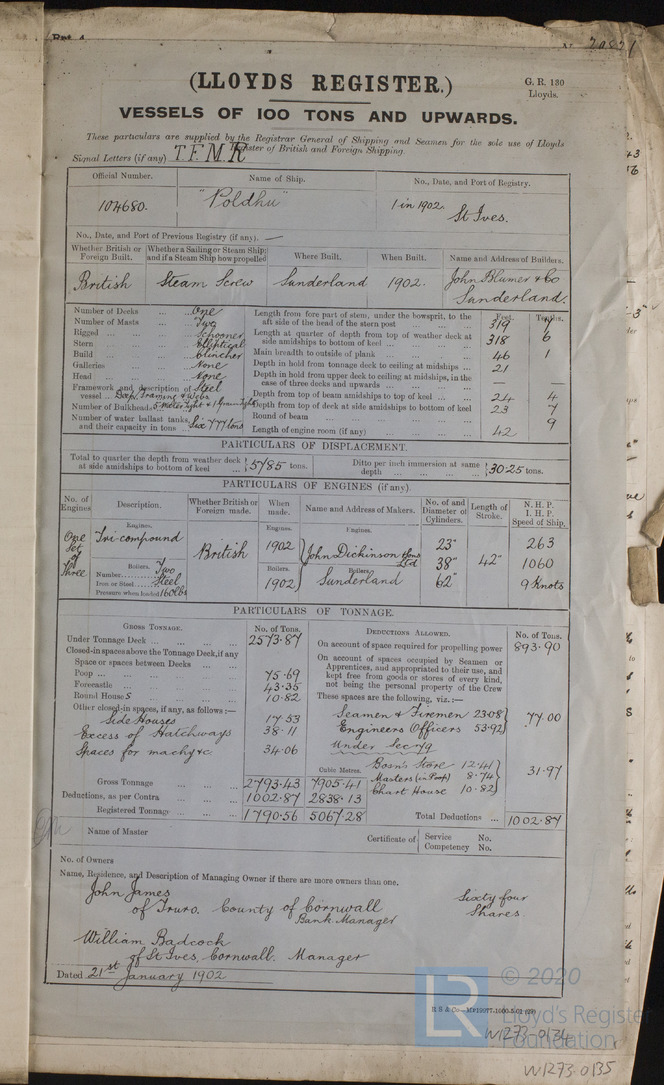 (LLOYDS REGISTER.)
G. R. 130
Lloyds.
VESSELS OF 100 TONS AND UPWARDS.
These particulars are supplied by the Registrar General of Shipping and Seamen for the sole use of Lloyds
Register of British and Foreign Shipping.
Signal Letters (if any) T.F.M.R
Official Number. Name of Ship. No., Date, and Port of Registry.
104680. "Poldhu" 1 in 1902.
St Ives.
No., Date, and Port of Previous Registry (if any). —
Whether British or Foreign Built. Whether a Sailing or Steam Ship; and if a Steam Ship how propelled Where Built. When Built. Name and Address of Builders.
British Steam Screw Sunderland 1902. John Blumer & Co
Sunderland.
Feet. Tenths.
Number of Decks ... One
Number of Masts ... Two
Rigged ... Schooner
Stern ... Elliptical
Build ... Clincher
Galleries ... None
Head ... None
Framework and description of vessel .. Steel
Deep Framing & Webs
Number of Bulkheads
Number of water ballast tanks, and their capacity in tons .. Six 777 tons
Length from fore part of stem, under the bowsprit, to the aft side of the head of the stern post ... 319 7
Length at quarter of depth from top of weather deck at side amidships to bottom of keel ... 318 6
Main breadth to outside of plank ... 46 1
Depth in hold from tonnage deck to ceiling at midships ... 21
Depth in hold from upper deck to ceiling at midships, in the case of three decks and upwards ... — —
Depth from top of beam amidships to top of keel ... 24 4
Depth from top of deck at side amidships to bottom of keel 23 7
Round of beam ... 9
Length of engine room (if any) ... 42
PARTICULARS OF DISPLACEMENT.
Total to quarter the depth from weather deck at side amidships to bottom of keel ... 5785 tons. Ditto per inch immersion at same depth ... 30.25 tons.
PARTICULARS OF ENGINES (if any).
No. of Engines Description. Whether British or Foreign made. When made. Name and Address of Makers. No. of and Diameter of Cylinders. Length of Stroke. N. H. P. I. H. P. Speed of Ship.
Engines. Engines. Engines.
One Set of Three Tri compound British 1902 John Dickinson & Sons Ltd 23" 38" 62" 42" 263 1060 9 Knots
Boilers. Boilers. Boilers.
Number Two
Iron or Steel Steel 1902 Sunderland
Pressure when loaded 160 lbs
PARTICULARS OF TONNAGE.
GROSS TONNAGE. No. of Tons.
Under Tonnage Deck ... 2573.87
Closed-in spaces above the Tonnage Deck, if any
Space or spaces between Decks ...
Poop ... 75.69
Forecastle ... 43.35
Round Houses ... 10.82
Other closed-in spaces, if any, as follows :—
Side Houses 17.53
Excess of Hatchways 38.11
Spaces for machy &c. 34.06
Cubic Metres.
Gross Tonnage 2793.43 7905.41
Deductions, as per Contra ... 1002.87 2838.13
Registered Tonnage ... 1790.56 5067.28
DEDUCTIONS ALLOWED. No. of Tons.
On account of space required for propelling power 893.90
On account of spaces occupied by Seamen or Apprentices, and appropriated to their use, and kept free from goods or stores of every kind, not being the personal property of the Crew
These spaces are the following, viz. :—
Seamen & Firemen 23.08
Engineers Officers 53.92 77.00
Under Sec 79
Bosn's Store 12.41
Masters (in Poop) 8.74 31.97
Chart House 10.82
Total Deductions ... 1002.87
Name of Master Certificate of Service No.
Competency No.
No. of Owners
Name, Residence, and Description of Managing Owner if there are more owners than one.
John James Sixty four
of Truro. County of Cornwall Shares.
Bank Manager
William Badcock
of St Ives, Cornwall. Manager
Dated 21st January 1902
LR
© 2020
Lloyd's Register
Foundation
W1273-0134
W1273-0135